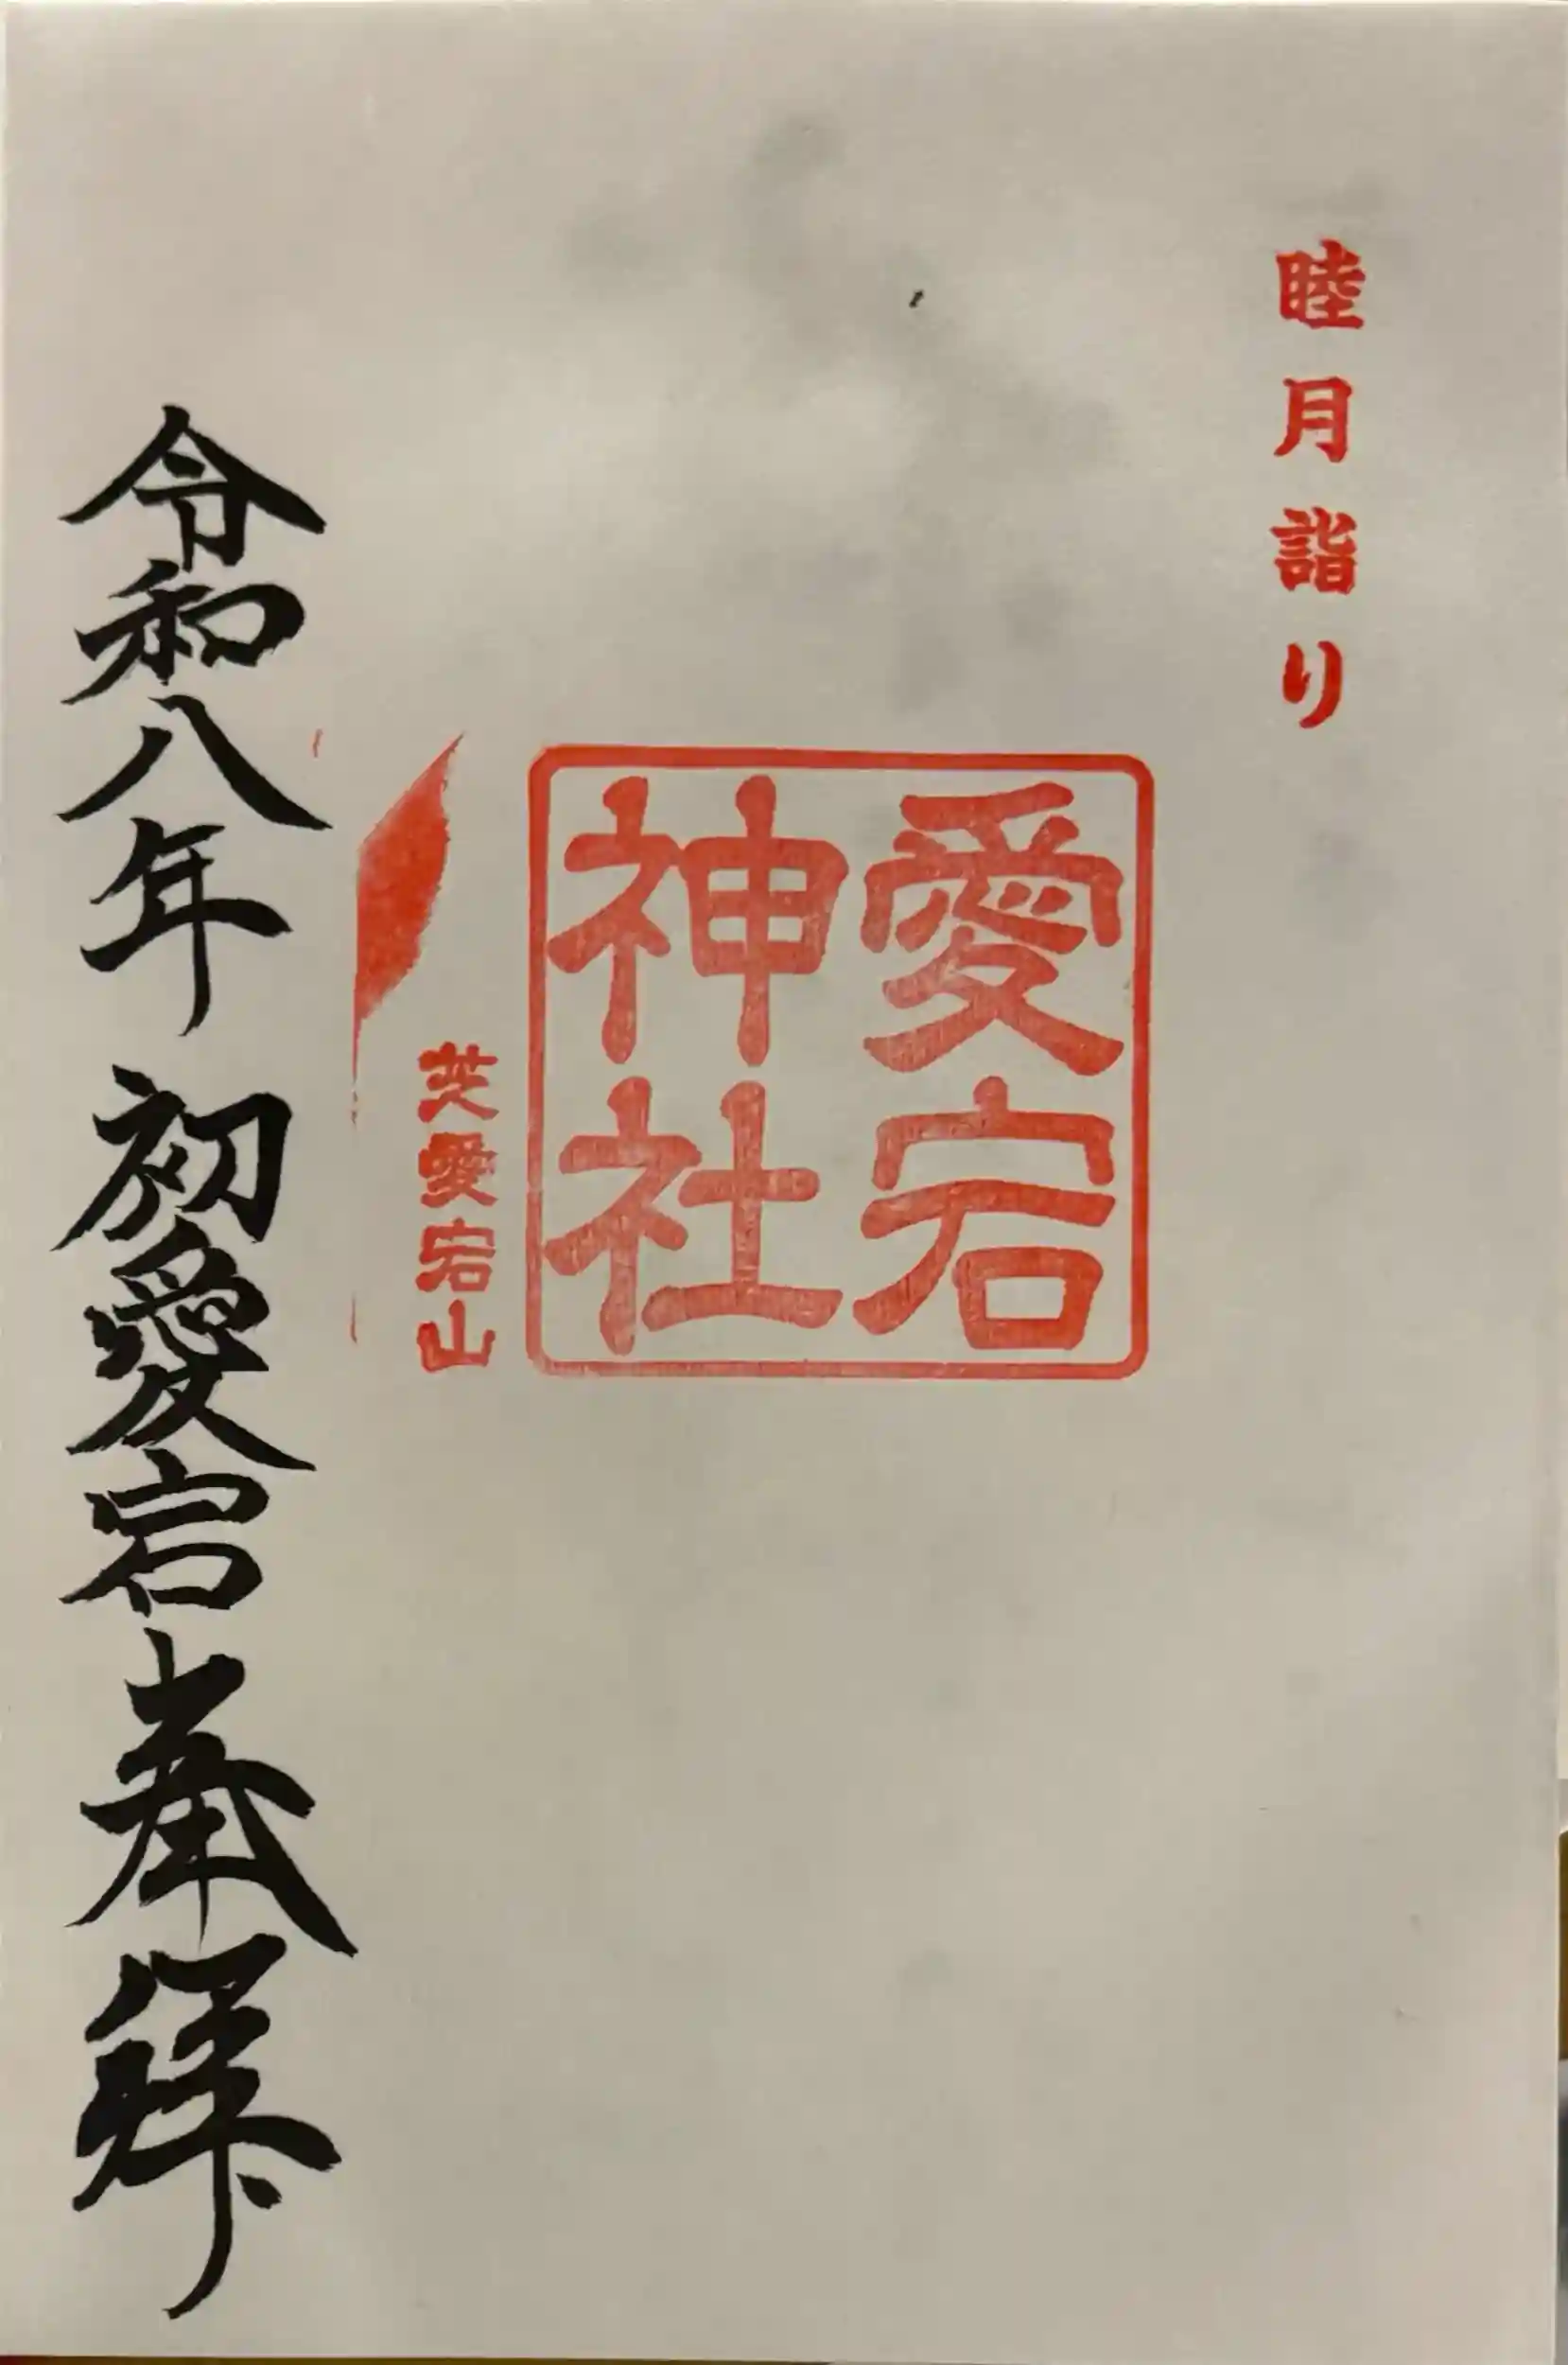 睦月詣り
愛宕
神社
芝愛宕山
令和八年 初愛宕奉拝